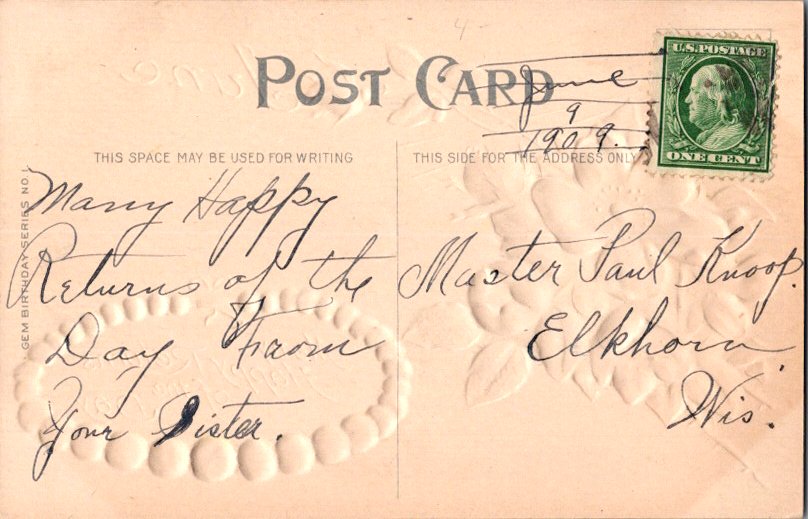 4-
POST CARD
U.S. POSTAGE
ONE CENT
June
9
1909.
THIS SPACE MAY BE USED FOR WRITING
THIS SIDE FOR THE ADDRESS ONLY
GEM BIRTHDAY SERIES NO. 1.
Many Happy
Returns of the
Day From
Your Sister.
Master Paul Knoop.
Elkhorn
Wis.